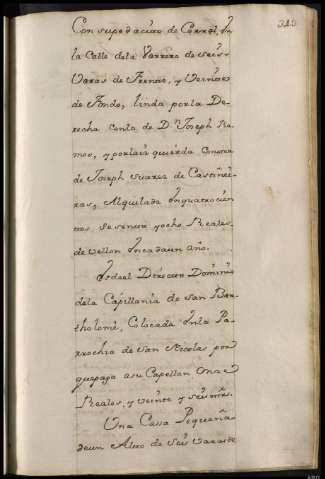 323
Con su pedacito de Corral, En
la Calle de la Varrera de seis
Varas de Frente, y Veinte
de Fondo, linda por la De
recha con la de Dn Joseph Ra
mos, y por la izquierda con otra
de Joseph Suarez de Castiñei
ras, Alquilada En quatrocien
tos sesenta y ocho Reales
de vellon En cada un año.
Es de el Directo Dominio
de la Capellania de San Bar
tholomè, Colocada En la Pa
rrochia de San Nicolas por
que paga a su Capellan Onze
Reales, y veinte y seis mrs.
Una Casa Pequeña
de un Alto de Seis Varas de